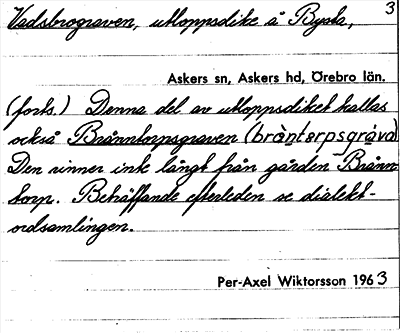 Vadsbrograven, utloppsdike å Bysta, 3
Askers sn, Askers hd, Örebro län.
(forts.) Denna del av utloppsdiket kallas
också Bränntorpsgraven (bräntərpsgrava)
Den rinner inte långt från gården Bränn-
torp. Beträffande efterleden se dialekt-
ordsamlingen.
Per-Axel Wiktorsson 1963